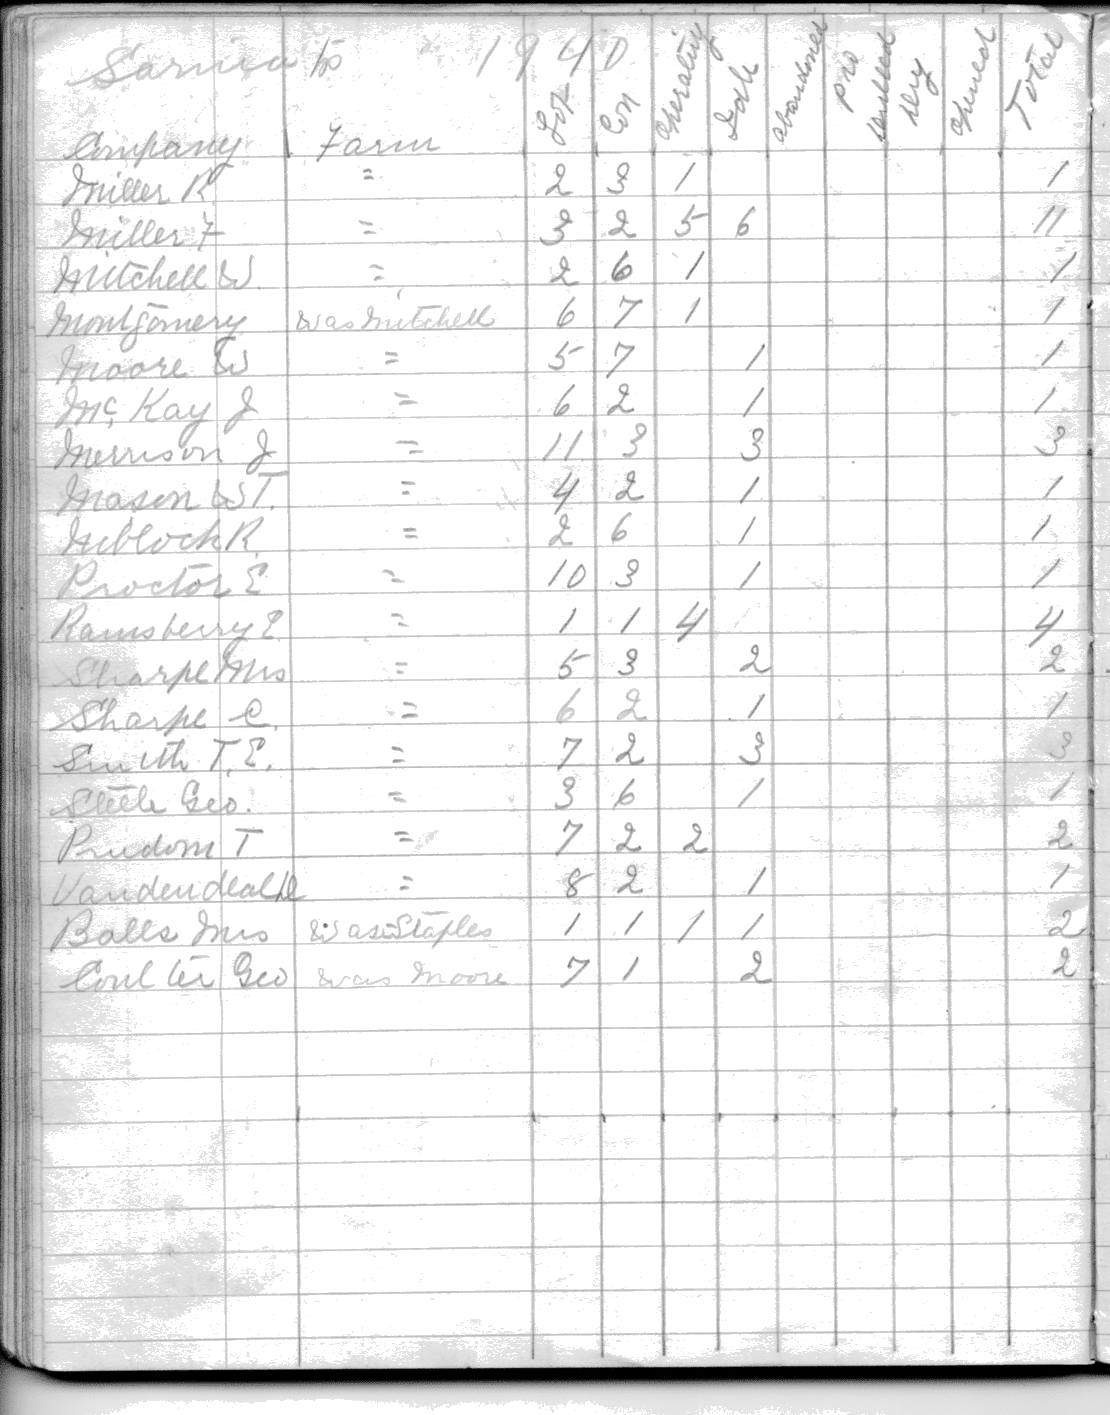 Sarnia tp 1940
Company Farm Lot Con Operating Idle abandoned pro drilled dry opened Total
Miller R. " 2 3 1 1
Miller F = 3 2 5 6 11
Mitchell W. = 2 6 1 1
Montgomery was Mitchell 6 7 1 1
Moore W = 5 7 1 1
Mc Kay J = 6 2 1 1
Morrison J = 11 3 3 3
Mason W T. = 4 2 1 1
R. = 2 6 1 1
Proctor E = 10 3 1 1
Ramsberry E = 1 1 4 4
Sharpe Mrs = 5 3 2 2
Sharpe C. = 6 2 1 1
Smith T. E. = 7 2 3 3
Steele Geo. = 3 6 1 1
Prudom T = 7 2 2 2
= 8 2 1 1
Balls Mrs was Staples 1 1 1 1 2
Coulter Geo was Moore 7 1 2 2